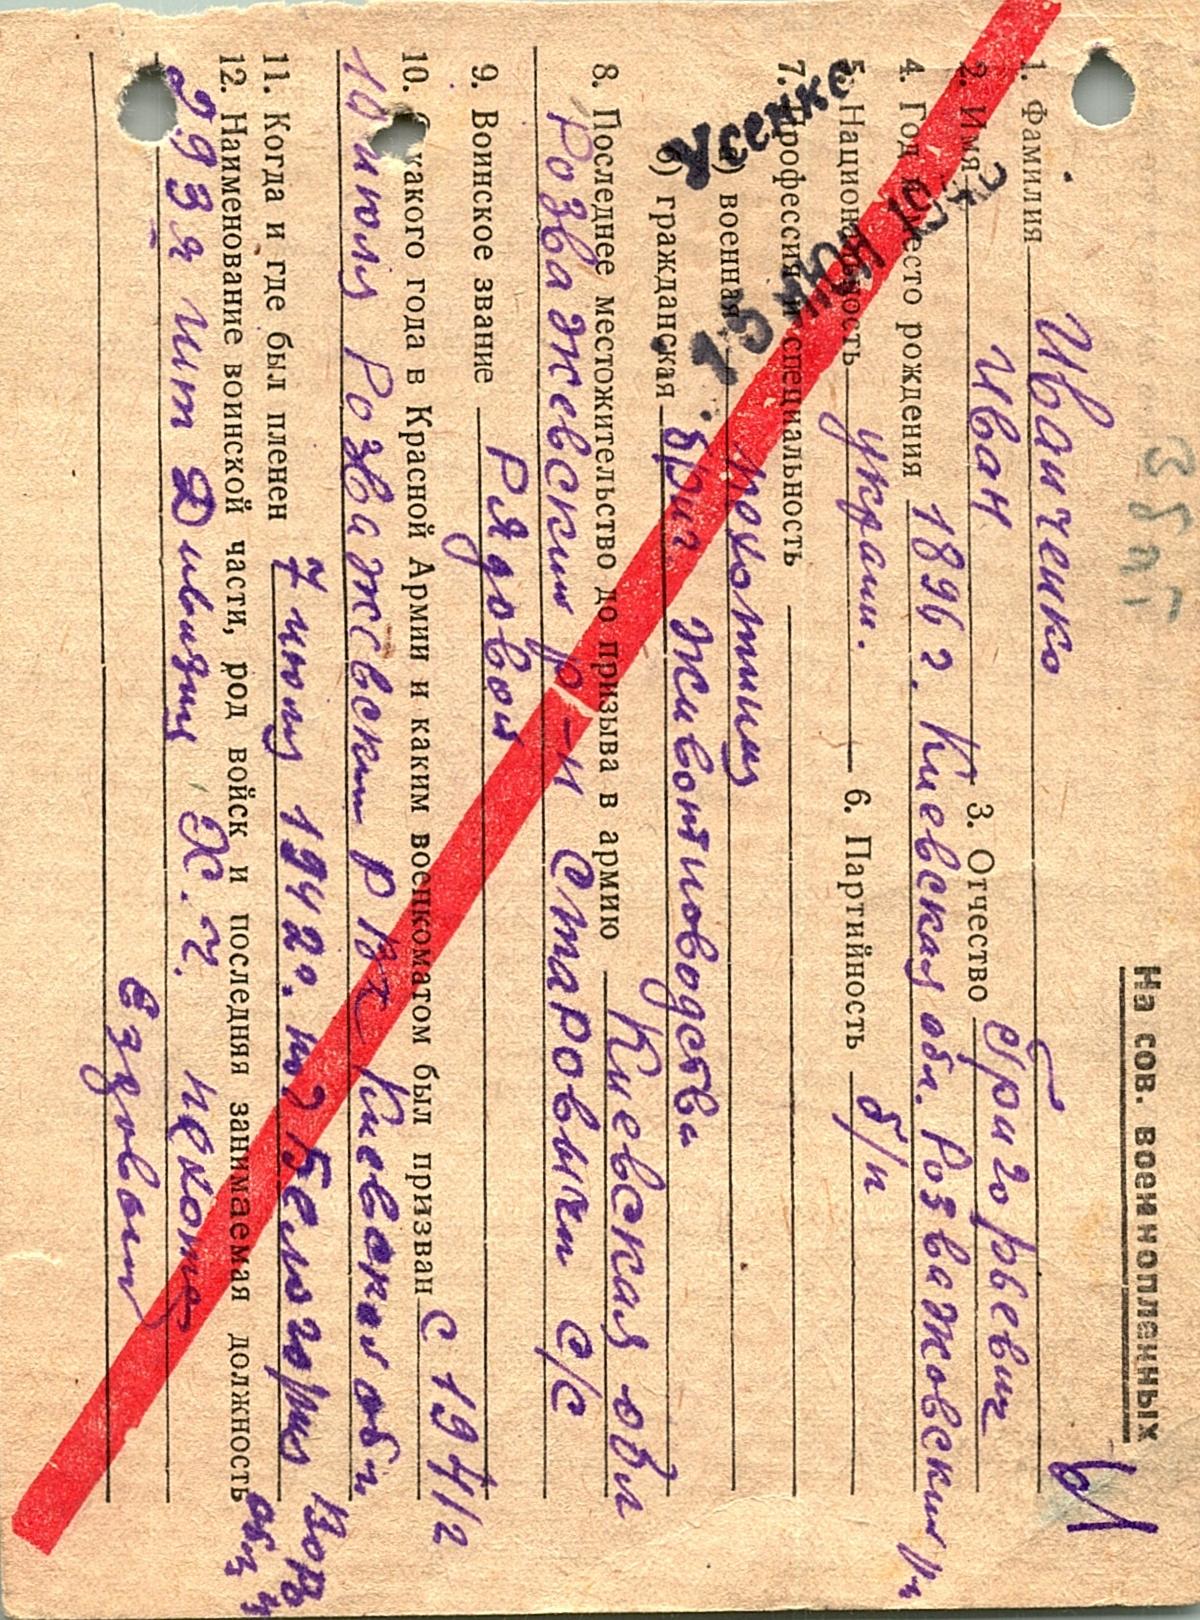 На сов. военнопленных
И
1. Фамилия Иванченко
2. Имя Иван 3. Отчество Григорьевич
4. Год и место рождения 1896 г. Киевская обл. Розважовский р-н
5. Национальность украин. 6. Партийность б/п
7. Профессия и специальность
а) военная пехотинец
б) гражданская бриг. животноводства
8. Последнее местожительство до призыва в армию Киевская обл
Розважевский р-н Старовичи с/с
9. Воинское звание Рядовой
10. С какого года в Красной Армии и каким военкоматом был призван с 1941 г
10 июля Розважевским РВК Киевской обл.
11. Когда и где был пленен 7 июля 1942 г. Белогория Вор обл
12. Наименование воинской части, род войск и последняя занимаемая должность
293я Дивизия Х.Ч. пехота
Ездовой
Усенко
15 ИЮН 1972